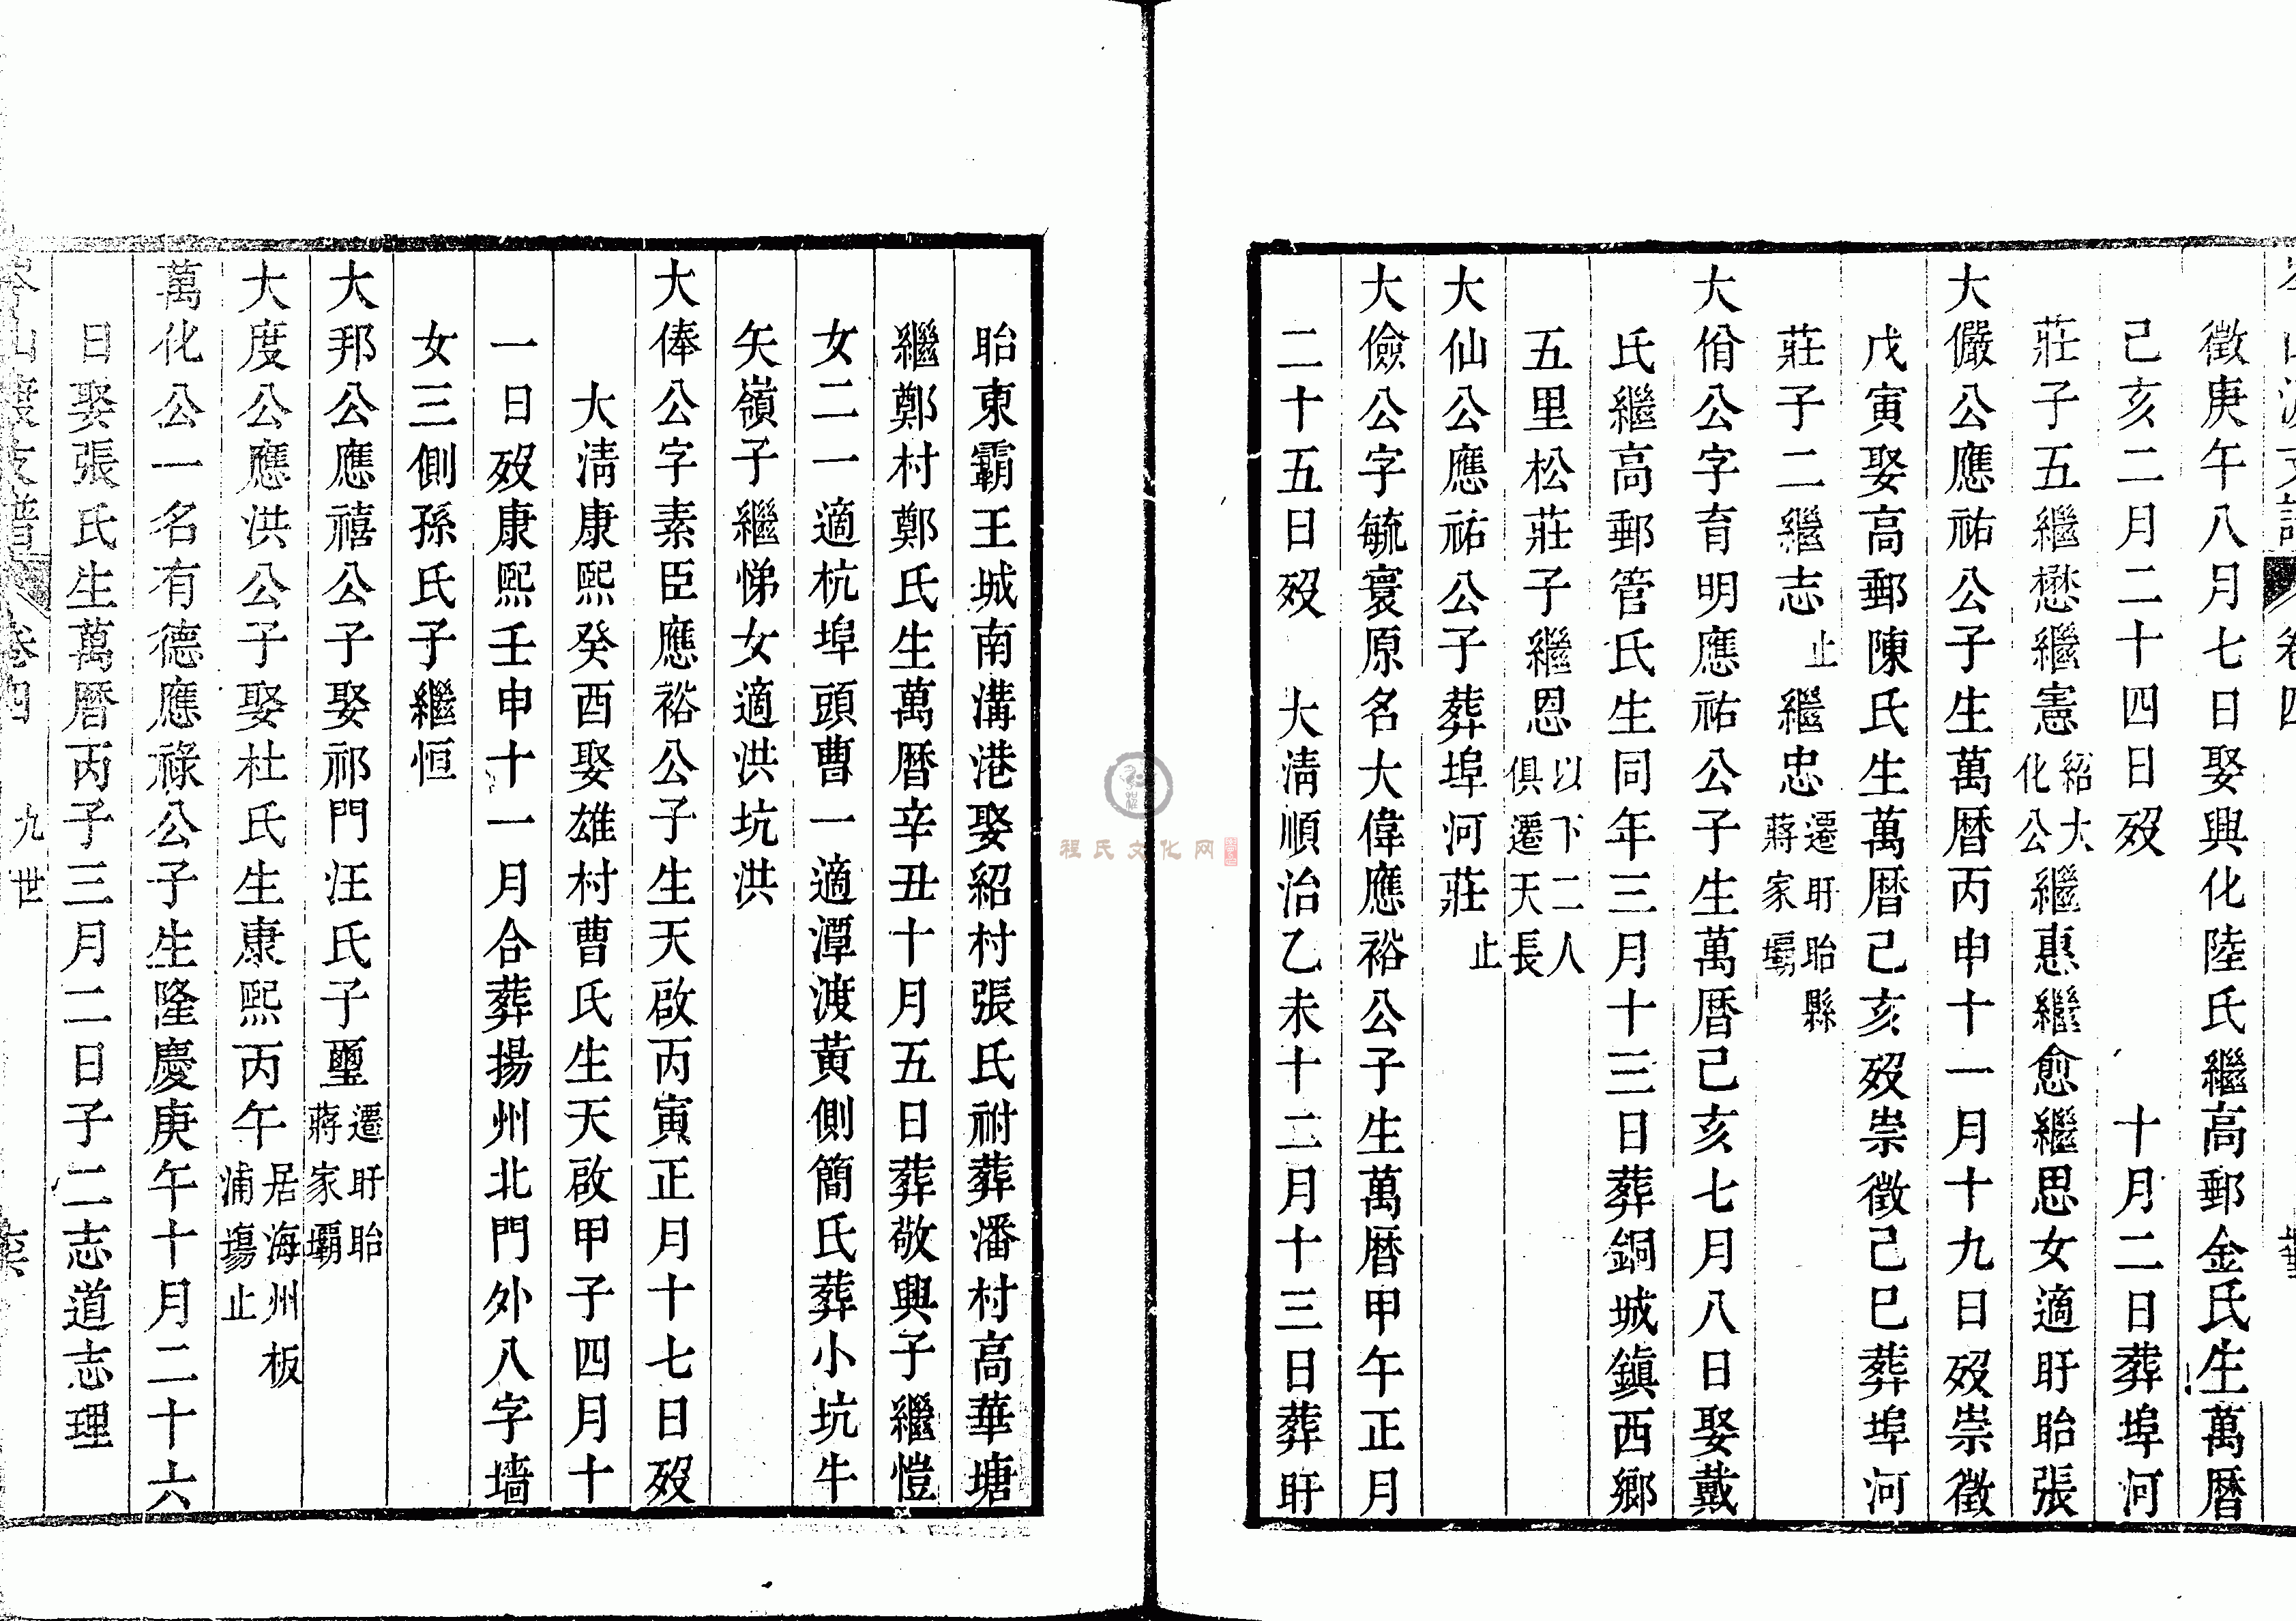 徵庚午八月七日娶興化陸氏繼高郵金氏生萬曆
己亥二月二十四日歿　十月二日葬埠河
莊子五繼懋繼憲紹大化公繼惠繼愈繼思女適盱眙張
大儼公應祐公子生萬曆丙申十一月十九日歿崇徵
戊寅娶高郵陳氏生萬曆己亥歿崇徵己巳葬埠河
莊子二繼志止繼忠遷盱眙縣蔣家壩
大佾公字育明應祐公子生萬曆己亥七月八日娶戴
氏繼高郵管氏生同年三月十三日葬銅城鎮西鄉
五里松莊子繼恩以下二人俱遷天長
大仙公應祐公子葬埠河莊止
大儉公字毓寰原名大偉應裕公子生萬曆甲午正月
二十五日歿　大清順治乙未十二月十三日葬盱
眙東霸王城南溝港娶紹村張氏祔葬潘村高華塘
繼鄭村鄭氏生萬曆辛丑十月五日葬敬興子繼愷
女二一適杭埠頭曹一適潭渡黃側簡氏葬小坑牛
矢嶺子繼悌女適洪坑洪
大俸公字素臣應裕公子生天啟丙寅正月十七日歿
大清康熙癸酉娶雄村曹氏生天啟甲子四月十
一日歿康熙壬申十一月合葬揚州北門外八字墻
女三側孫氏子繼恒
大邦公應禧公子娶祁門汪氏子璽遷盱眙蔣家壩
大度公應洪公子娶杜氏生康熙丙午居海州板浦場止
萬化公一名有德應祿公子生隆慶庚午十月二十六
日娶張氏生萬曆丙子三月二日子二志道志理
山渡支譜 卷四 九世
程氏文化网